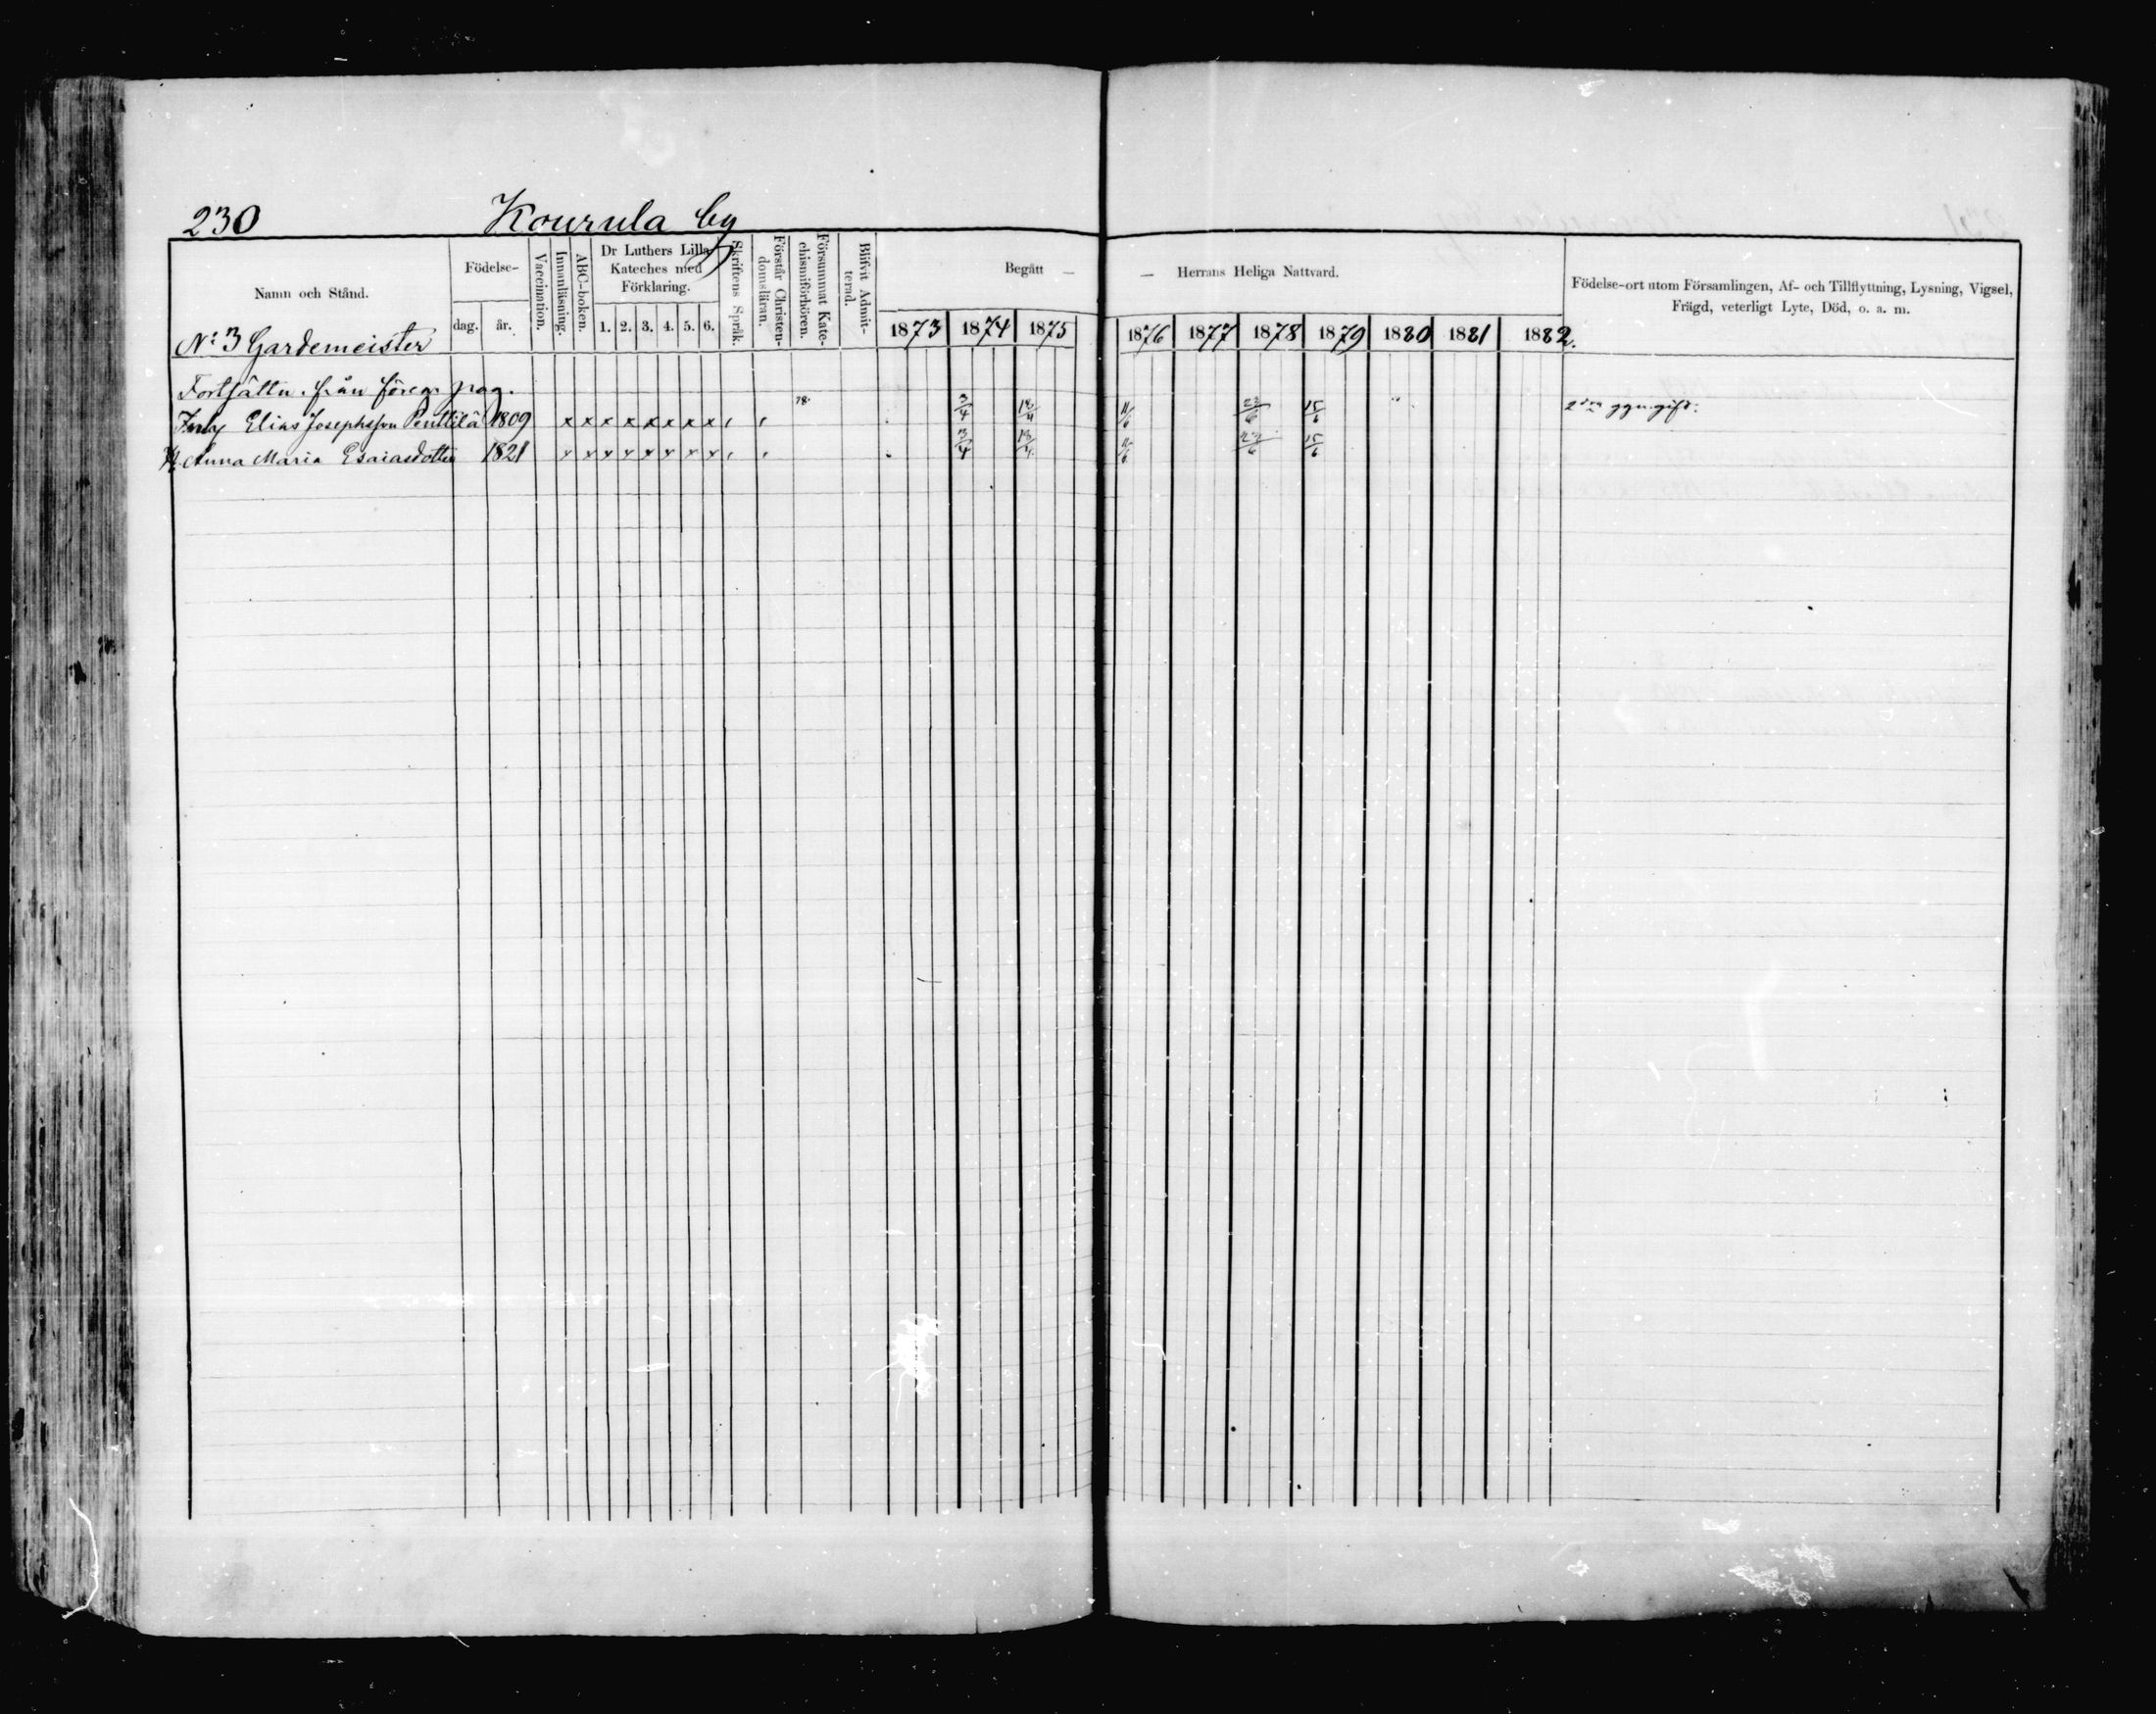 230 Kourula by
Namn och Stånd.
Födelse-
dag. år.
Vaccination.
Innanläsning.
ABC-boken.
Dr Luthers Lilla
Kateches med
Förklaring.
1. 2. 3. 4. 5. 6.
Skriftens Språk.
Förstår Christen-
domsläran.
Försummat Kate-
chismiförhören.
Blifvit Admit-
terad.
Begått —
— Herrans Heliga Nattvard.
1873 1874 1875 1876 1877 1878 1879 1880 1881 1882.
Födelse-ort utom Församlingen, Af- och Tillflyttning, Lysning, Vigsel,
Frägd, veterligt Lyte, Död, o. a. m.
No 3 Gardemeister
Fortsättn. från föreg. pag.
Elias Josephsson Penttilä 1809 x x x x x x x x 78. 3/4 18/4 11/6 15/6
Anna Maria Esaiasdotter 1821 x x x x x x x x 3/4 11/6 23/6 15/6